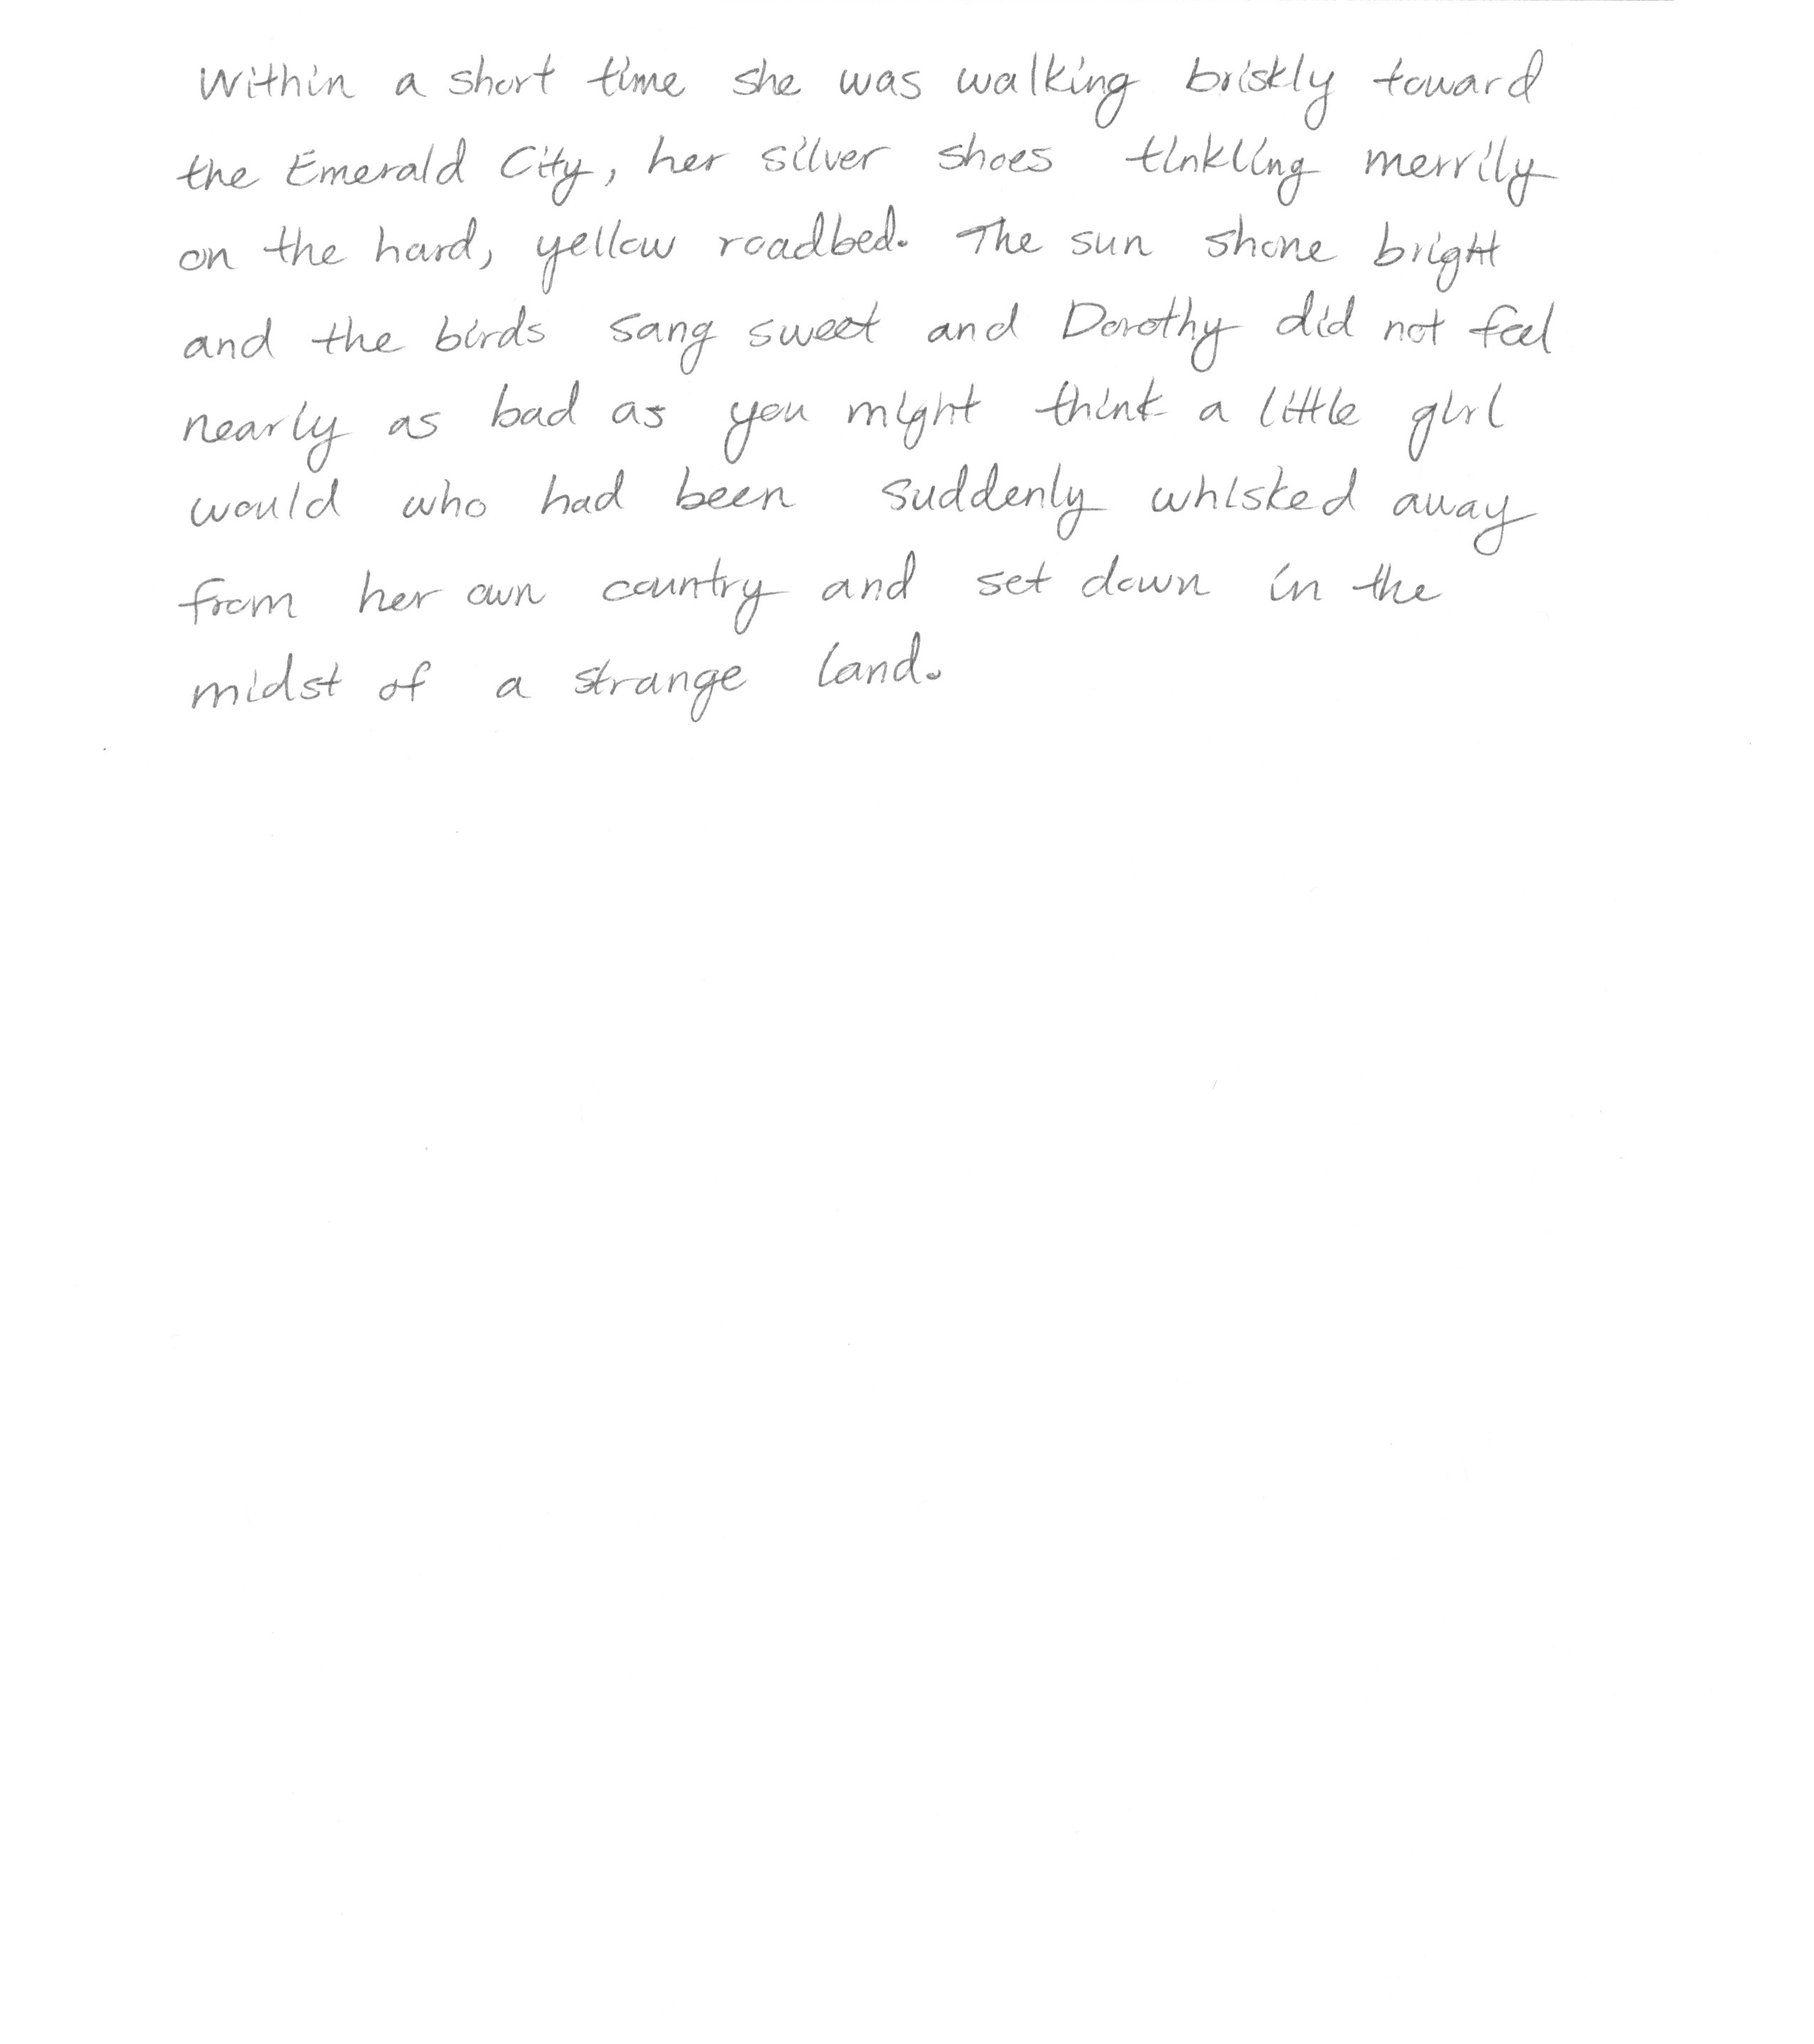 Within a short time she was walking briskly toward
the Emerald City, her silver shoes tinkling merrily
on the hard, yellow roadbed. The sun shone bright
and the birds sang sweet and Dorothy did not feel
nearly as bad as you might think a little girl
would who had been suddenly whisked away
from her own country and set down in the
midst of a strange land.